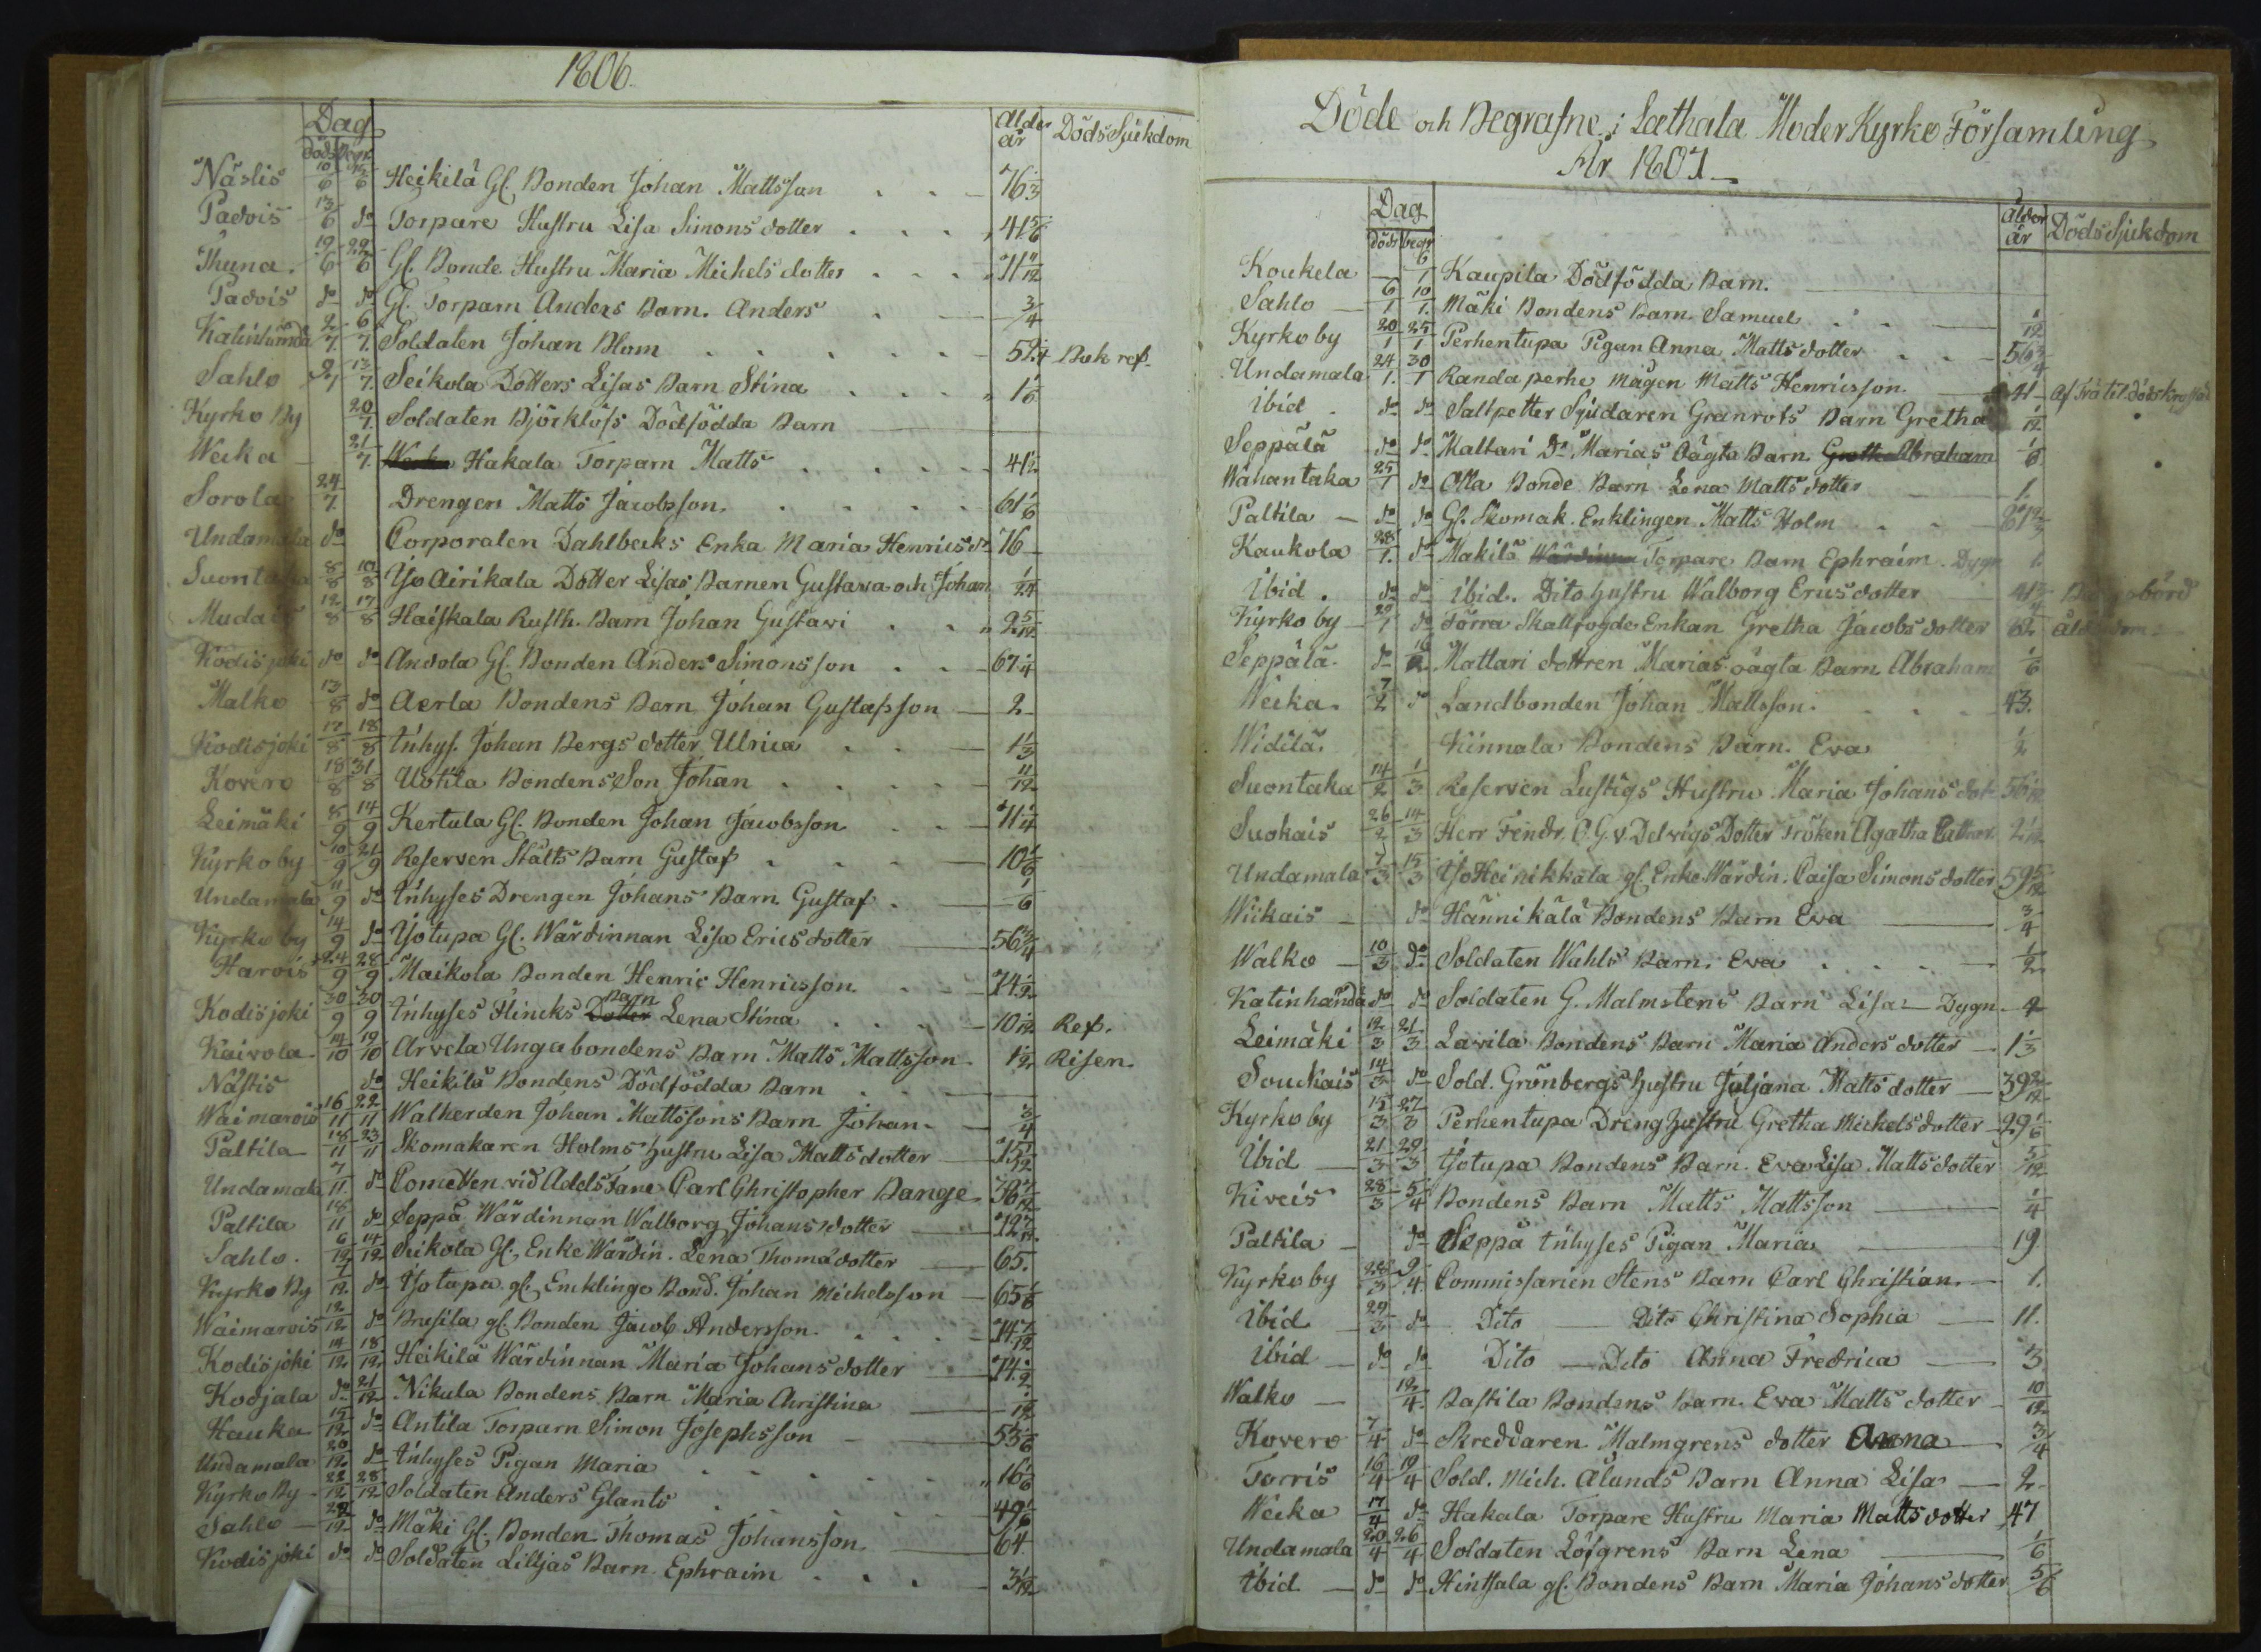 1806.
Dag
döds begr.
Ålder
år
Döds Sjukdom
Näslis 10/6 15/6 Heikilä Gl. Bonden Johan Mattsson 76 1/3
Padvis 13/6 do Torpare Hustru Lisa Simons dotter 41 5/6
Thuna. 19/6 22/6 Gl. Bonde Hustru Maria Michels dotter 71 11/12
Padvis do do Gl. Torparn Anders Barn. Anders 3/4
Katinhända 2/7 6/7. Soldaten Johan Blom Bok ref.
Sahlo 9/7 13/7. Seikola Dotters Lisas Barn Stina 1 1/6
Kyrko By 20/7. Soldaten Björklöfs Dödfödda Barn
Weika 21/7. Hakala Torparn Matts 41 1/2
Sorola 24/7 Drengen Matts Jacobsson. 61 1/6
Undamala do Corporalen Dahlbecks Enka Maria Henrics dr 76
Suontaka 8/8 10/8 Yso Airikala Dotter Lisas, Barnen Gustava och Johan 1/24
Mudais 12/8 17/8 Haiskala Rusth. Barn Johan Gustavi 2 5/12
Kodisjoki do do Andola Gl. Bonden Anders Simonsson 67 1/4
Malko 13/8 do Aerla Bondens Barn Johan Gustafsson 2
Kodisjoki 17/8 18/8 Inhys. Johan Bergs dotter Ulrica 1 1/3
Kovero 18/8 31/8 Uotila Bondens Son Johan 11/12
Leimäki 8/9 14/9 Kertula Gl. Bonden Johan Jacobsson 71 1/4
Kyrko by 10/9 21/9 Reserven Stälts Barn Gustaf 10 1/6
Undamala 11/9 do Inhyses Drengen Johans Barn Gustaf 1/6
Kyrko by 14/9 do Ysotupa Gl. Wärdinnan Lisa Erics dotter 56 3/4
Harvis 24/9 28/9 Maikola Bonden Henric Henricsson 74 1/2
Kodisjoki 30/9 30/9 Inhyses Flincks Dotter Barn Lena Stina 10 1/12 Ref.
Kaivola 14/10 19/10 Arvela Unga bondens Barn Matts Mattsson 1 1/2 Risen.
Nästis do Heikilä Bondens Dödfödda Barn
Waimarois 16/11 22/11 Walherden Johan Mattssons Barn Johan 3/4
Paltila 18/11 23/11 Skomakaren Holms Hustru Lisa Matts dotter
Undamala 7/11 do Cornetten vid Adels Fane Carl Christopher Bange
Paltila 18/11 do Seppä Wärdinnan Walborg Johans dotter
Sahlo. 6/12 14/12 Seikola Gl. Enke Wärdin. Lena Thomä dotter 65.
Kyrko By 7/12 do Ysotupa gl. Encklinge Bond. Johan Michelsson 65 1/6
Waimarois 12/12 do Prusila gl. Bonden Jacob Andersson 74 7/12
Kodisjoki 14/12 18/12 Heikilä Wärdinnan Maria Johans dotter 74 1/2
Kodjala do 21/12 Nikula Bondens Barn Maria Christina 1/12
Hauka 15/12 do Antila Torparn Simon Josephsson 53 1/6
Undamala 20/12 do Inhyses Pigan Maria 16 1/6
Kyrko By 22/12 28/12 Soldaten Anders Glants 49 1/6
Sahlo 22/12 do Mäki Gl. Bonden Thomas Johansson 64
Kodisjoki do do Soldaten Liljas Barn Ephraim 3 1/12
Döde och Begrafne i Lethala Moder Kyrko Församling
År 1807
Dag
döds begr.
Ålder
år
Döds Sjukdom
Koukela 6/1 Kaupila Dödfödda Barn.
Sahlo 6/1 10/1. Mäki Bondens Barn Samuel 1/12
Kyrko by 20/1 25/1 Perhentupa Pigan Anna Matts dotter 56 3/4
Undamala 24/1. 30/1 Randa perhe mågen Matts Henricsson 41
Ibid. do do Saltpetter Sjudaren Granrots Barn Gretha 1/12
Seppälä do do Maltari Dr Marias Oägta Barn Gretha Abraham 1/6
Wahantaka 25/1 do Olla Bonde Barn Lena Matts dotter 1.
Paltila do do Gl. Skomak. Enklingen Matts Holm
Kaukola 28/1. do Makilä Torpare Barn Ephraim. Dygn 1.
Ibid. do do Ibid. Dito Hustru Walborg Erics dotter 41 3/4
Kyrko by 29/1 do Förra Skallfogde Enkan Gretha Jacobs dotter 62 Ålderdom
Seppälä do Mattari dottren Marias oägta Barn Abraham 1/6
Weika. 7/2 do Landbonden Johan Mattsson. 43.
Widilä. Kinnala Bondens Barn. Eva 1/2
Suontaka 14/2 1/3 Reserven Lustigs Hustru Maria Johans dot
Suokais 26/2 14/3 Herr Fendr. C. G. v. Delwigs Dotter Fröken Agatha
Undamala 7/3 15/3 Yso Heinikkala gl. Enke Wärdin. Caisa Simons dotter 59 5/12
Wiikais do Hännikälä Bondens Barn Eva 3/4
Walko 10/3 do Soldaten Wahls Barn. Eva 1/2
Katinhändä do do Soldaten G. Malmstens Barn Lisa Dygn 4
Leimäki 12/3 21/3 Lavila Bondens Barn Maria Anders dotter 1 1/3
Souckais 14/3 do Sold. Grönbergs Hustru Juljana Matts dotter 39 2/12
Kyrko by 15/3 27/3 Perhentupa Dreng Hustru Gretha Michels dotter 29 1/6
Ibid 21/3 29/3 Ysotupa Bondens Barn. Eva Lisa Matts dotter 5/12
Kiveis 28/3 5/4 Bondens Barn Matts Mattsson 1/4
Paltila do Seppä Inhyses Pigan Maria 19.
Kyrko by 28/3 9/4. Commissarien Stens Barn Carl Christian. 1.
Ibid 29/3 do Dito Dito Christina Sophia 11.
Ibid do do Dito Dito Anna Fredrica 3.
Walko 12/4. Pastila Bondens Barn. Eva Matts dotter 10/12
Kovero 7/4 do Skreddaren Malmgrens dotter Anna 3/4
Torris 16/4 19/4 Sold. Mich. Ålunds Barn Anna Lisa 2
Weika 17/4 do Hakala Torpare Hustru Maria Matts dotter 47
Undamala 20/4 26/4 Soldaten Löfgrens Barn Lena 1/6
Ibid do do Hintsala gl. Bondens Barn Maria Johans dotter 5/6